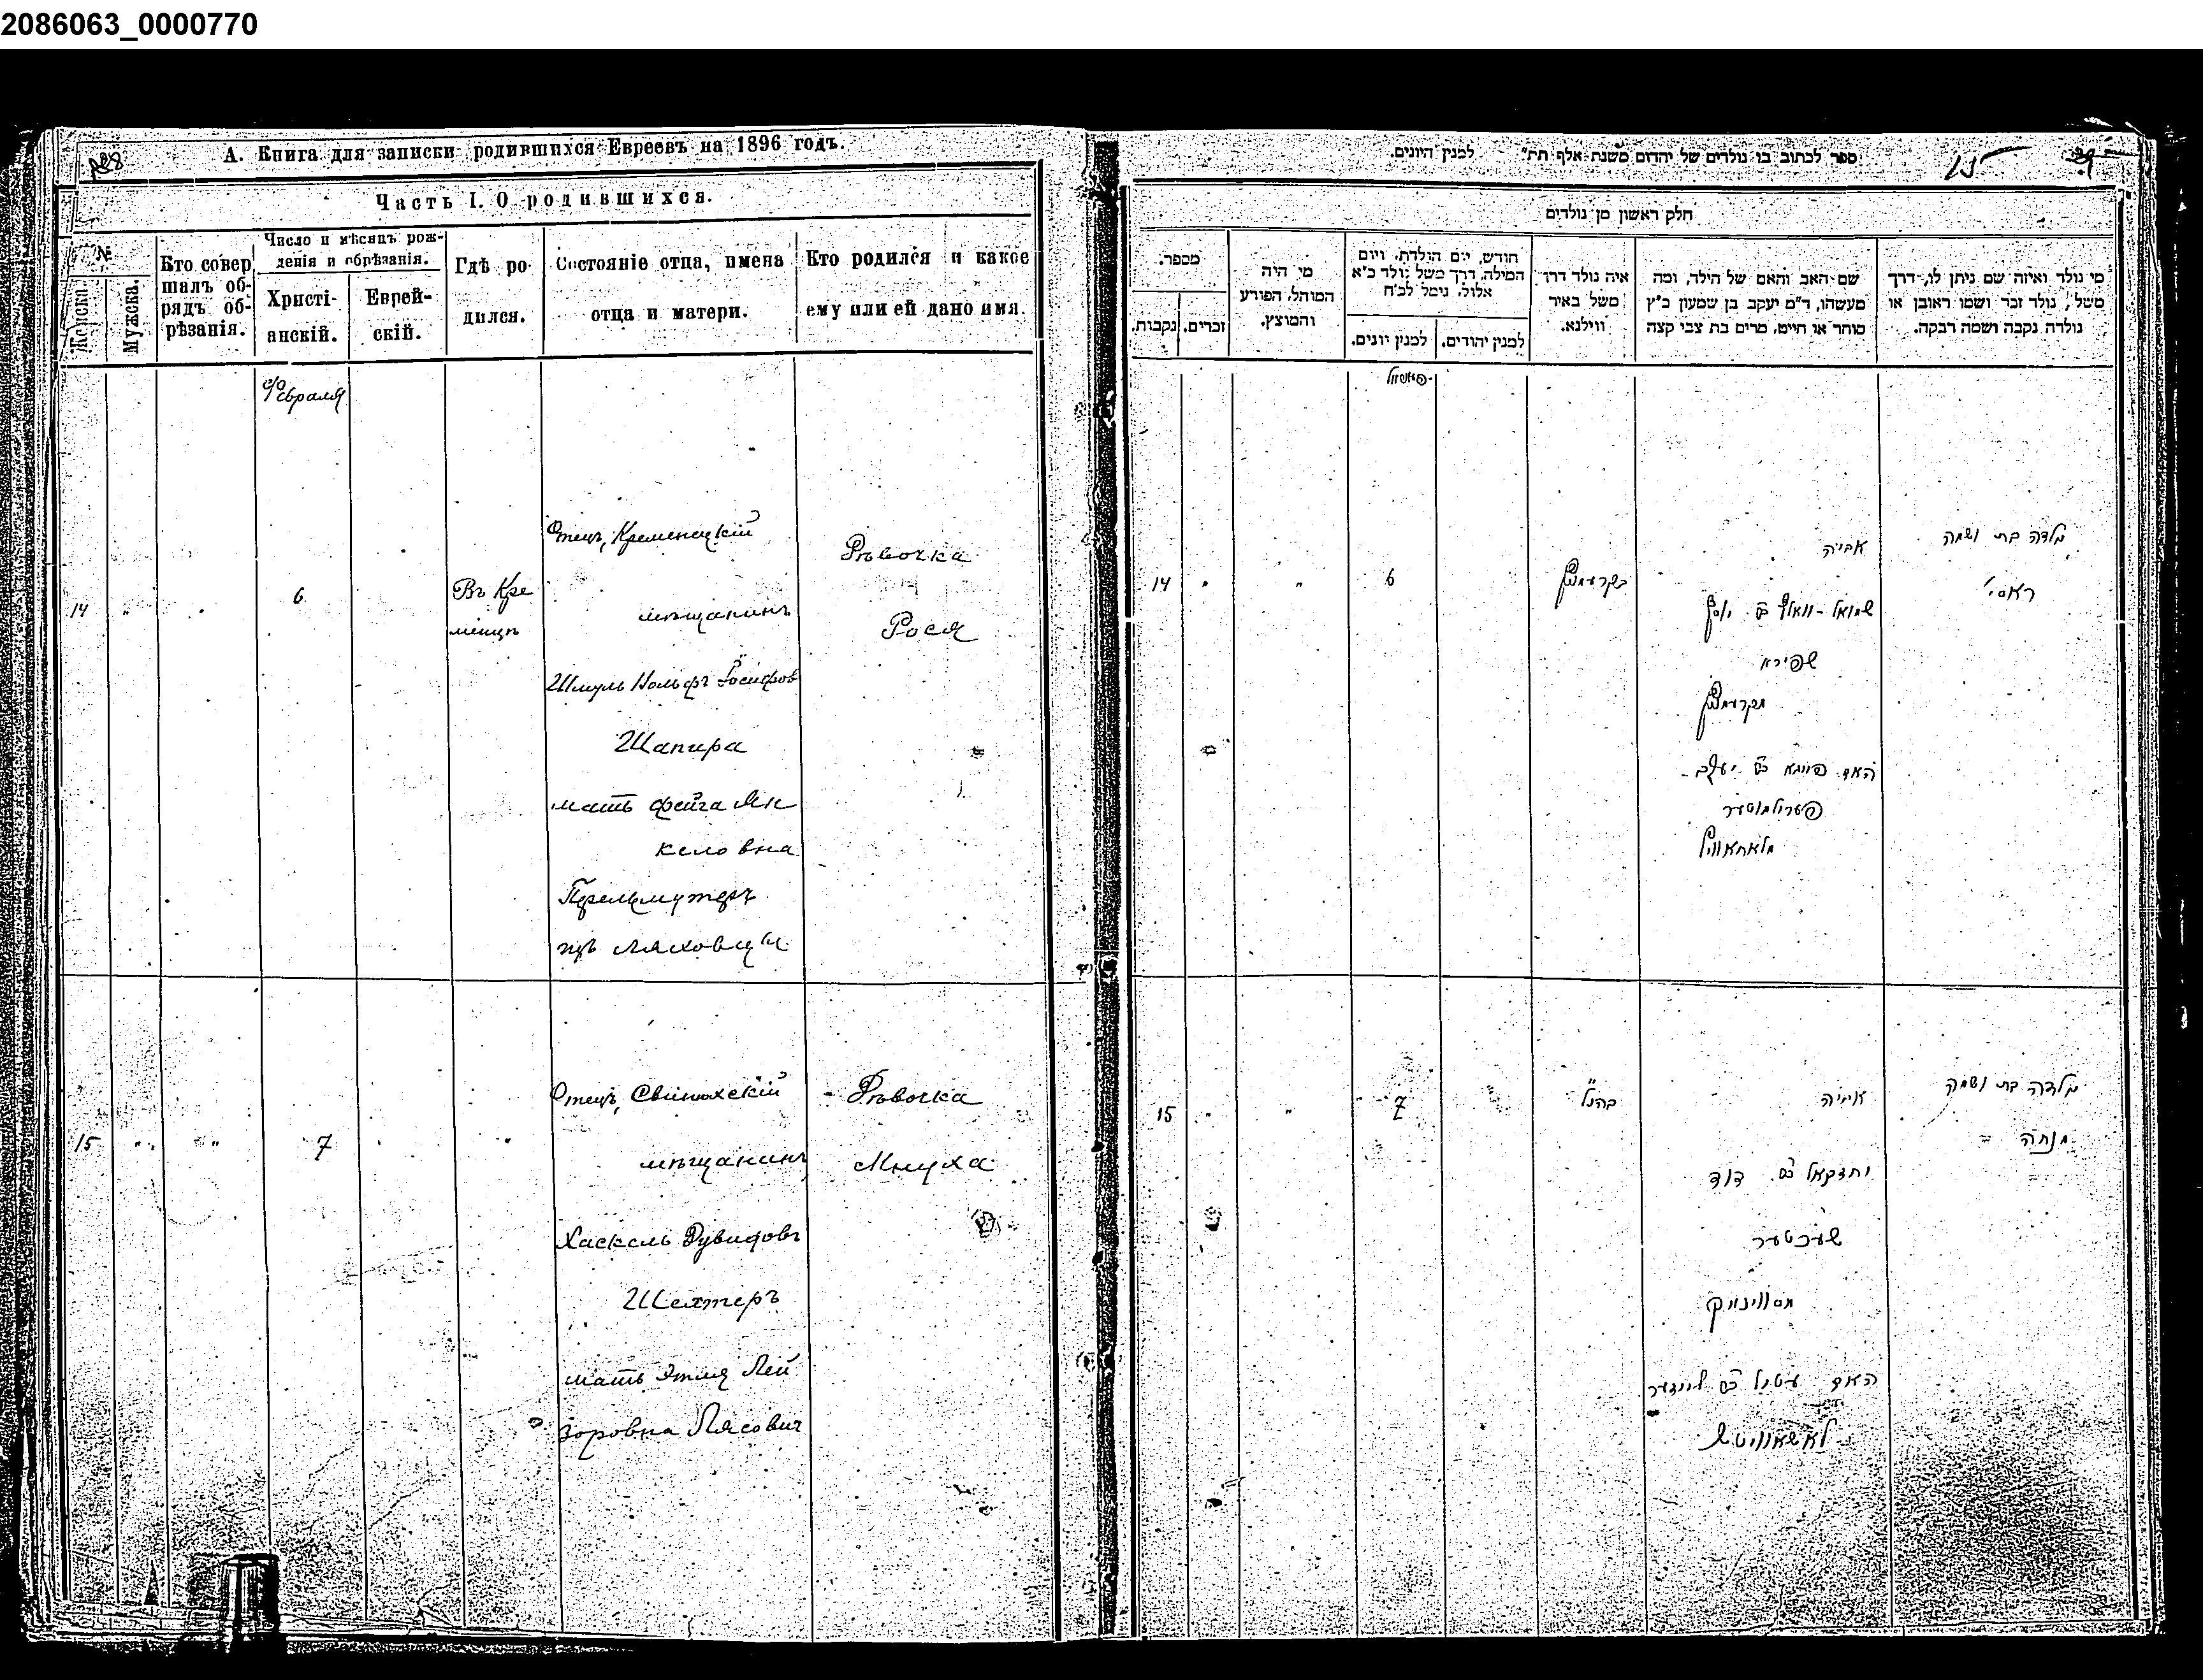 2086063_0000770
А. Книга для записки родившихся Евреевъ на 1896 годъ.
Часть I. О родившихся.
№
Женска.
Мужска.
Кто совер
шалъ об-
рядъ об-
рѣзанія.
Число и мѣсяцъ рож-
денія и обрѣзанія.
Христі-
анскій.
Еврей-
скій.
Гдѣ ро-
дился.
Состояніе отца, имена
отца и матери.
Кто родился и какое
ему или ей дано имя.
Февраля
14 " 6
Въ Кре
менцѣ
Отецъ, Кременецкій
мѣщанинъ
Шмуль Вольфъ Іосифов
Шапира
мать Фейга Ян
келовна
Перельмутеръ
изъ Ляховцы
Дѣвочка
Рося
15 " " 7 "
Отецъ, Свинюхскій
мѣщанинъ
Хаскель Дувидовъ
Шехтеръ
мать Этля Лей
зоровна Лясович
Дѣвочка
Мнуха
ספר לכתוב בו נולדים של יהדום משנת אלף תת" למנין היונים.
15
חלק ראשון מן נולדים
מספר.
נקבות.
זכרים.
מי היה
המוהל, הפורע
והמוצץ.
חודש, יום הולדת, ויום
המילה, דרך משל נולד כ"א
אלול, נימל לכ"ח
למנין יונים.
למנין יהודים.
איה נולד דרך
משל באיר
ווילנא.
שם האב והאם של הילד, ומה
מעשהו, ד"מ יעקב בן שמעון כ"ץ
סוחר או חייט, מרים בת צבי קצה
מי נולד ואיזה שם ניתן לו, דרך
משל, נולד זכר ושמו ראובן או
נולדה נקבה ושמה רבקה.
14 " " 6
בקרעמניץ
אביה
שמואל-וואלף ב"ר יוסף
שפירא
מקרעמניץ
האם פייגא ב"ר יעקב
פערילמוטער
מלאחאוויץ
נולדה בת ושמה
ראסי'
15 " " 7
כהנ"ל
אביה
יחזקאל ב"ר דוד
שעכטער
מסווינויק
האם עטיל ב"ר לייזער
לאשאוויטש
נולדה בת ושמה
מנחה